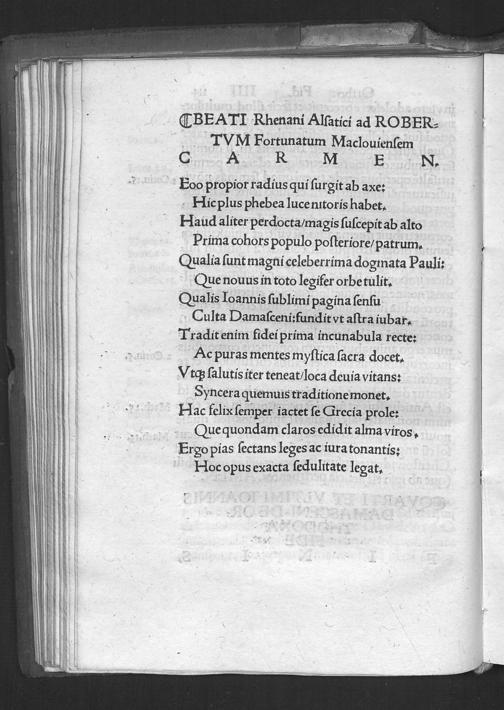 ⁋BEATI Rhenani Alſatici ad ROBER=
TVM Fortunatum Maclouienſem
CARMEN.
Eoo propior radius qui ſurgit ab axe:
Hic plus phebea luce nitoris habet.
Haud aliter perdocta/magis ſuſcepit ab alto
Prima cohors populo poſteriore/patrum.
Qualia ſunt magni celeberrima dogmata Pauli:
Que nouus in toto legifer orbe tulit.
Qualis Ioannis ſublimi pagina ſenſu
Culta Damaſceni:fundit vt aſtra iubar.
Tradit enim fidei prima incunabula recte:
Ac puras mentes myſtica ſacra docet.
Vtqꝫ ſalutis iter teneat/loca deuia vitans:
Syncera quemuis traditione monet.
Hac felix ſemper iactet ſe Grecia prole:
Que quondam claros edidit alma viros.
Ergo pias ſectans leges ac iura tonantis:
Hoc opus exacta ſedulitate legat.